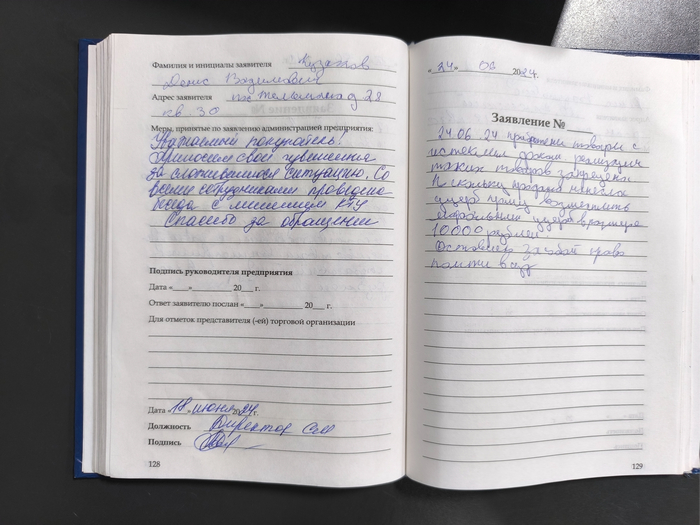 Фамилия и инициалы заявителя
Денис Вадимович
Адрес заявителя 28
кв. 30
Меры, принятые по заявлению администрацией предприятия:
Уважаемый покупатель!
Приносим свои извинения
за сложившуюся ситуацию. Со
всеми сотрудниками проведена
беседа с лишением КТУ
Спасибо за обращение
Подпись руководителя предприятия
Дата «___» ______ 20__ г.
Ответ заявителю послан «___» ______ 20__ г.
Для отметок представителя (-ей) торговой организации
Дата «18» июня 2024г.
Должность Директор
Подпись
128
«24» 06 2024г.
Заявление №
24.06.24 товары с
таких товаров запрещена
ущерб прошу возместить
моральный ущерб в размере
10000 рублей
Оставляю за собой право
в суд
129